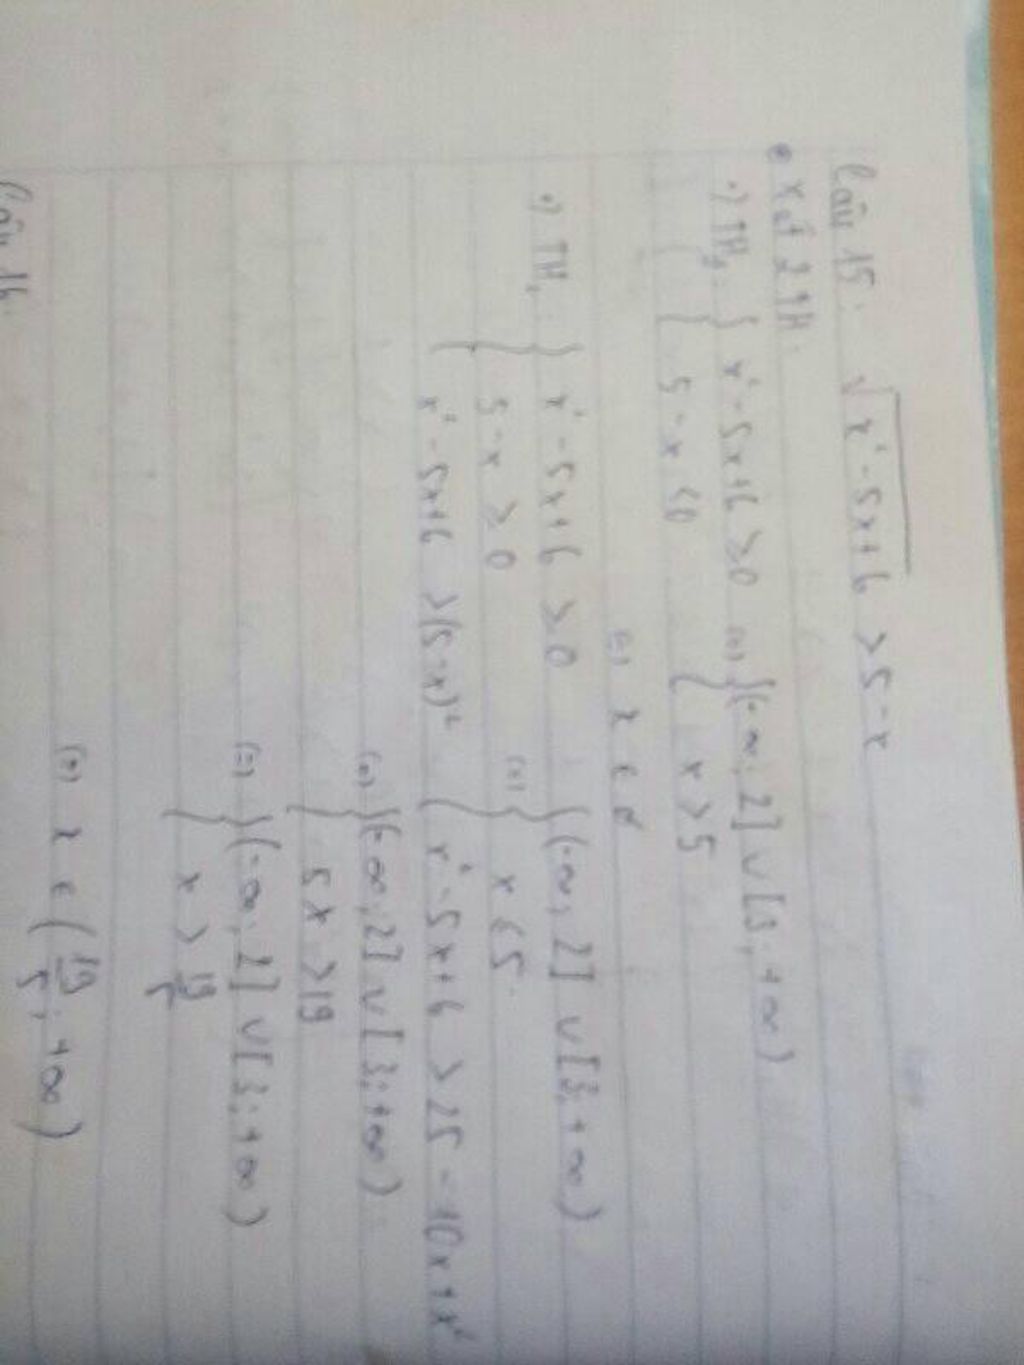 Câu 15. √(x² - 5x + 6) > 5 - x
• xét 2 TH.
•) TH₁ { x² - 5x + 6 ≥ 0 (=) { (-∞; 2] ∪ [3; +∞)
{ 5 - x < 0 { x > 5
(=) x ∈
•) TH₂ { x² - 5x + 6 ≥ 0 { (-∞; 2] ∪ [3; +∞)
{ 5 - x ≥ 0 (=) { x ≤ 5.
{ x² - 5x + 6 > (5 - x)² { x² - 5x + 6 > 25 - 10x + x²
(=) { (-∞; 2] ∪ [3; +∞)
{ 5x > 19
(=) { (-∞; 2] ∪ [3; +∞)
{ x > 19/5
(=) x ∈ (19/5; +∞)
Câu 16.